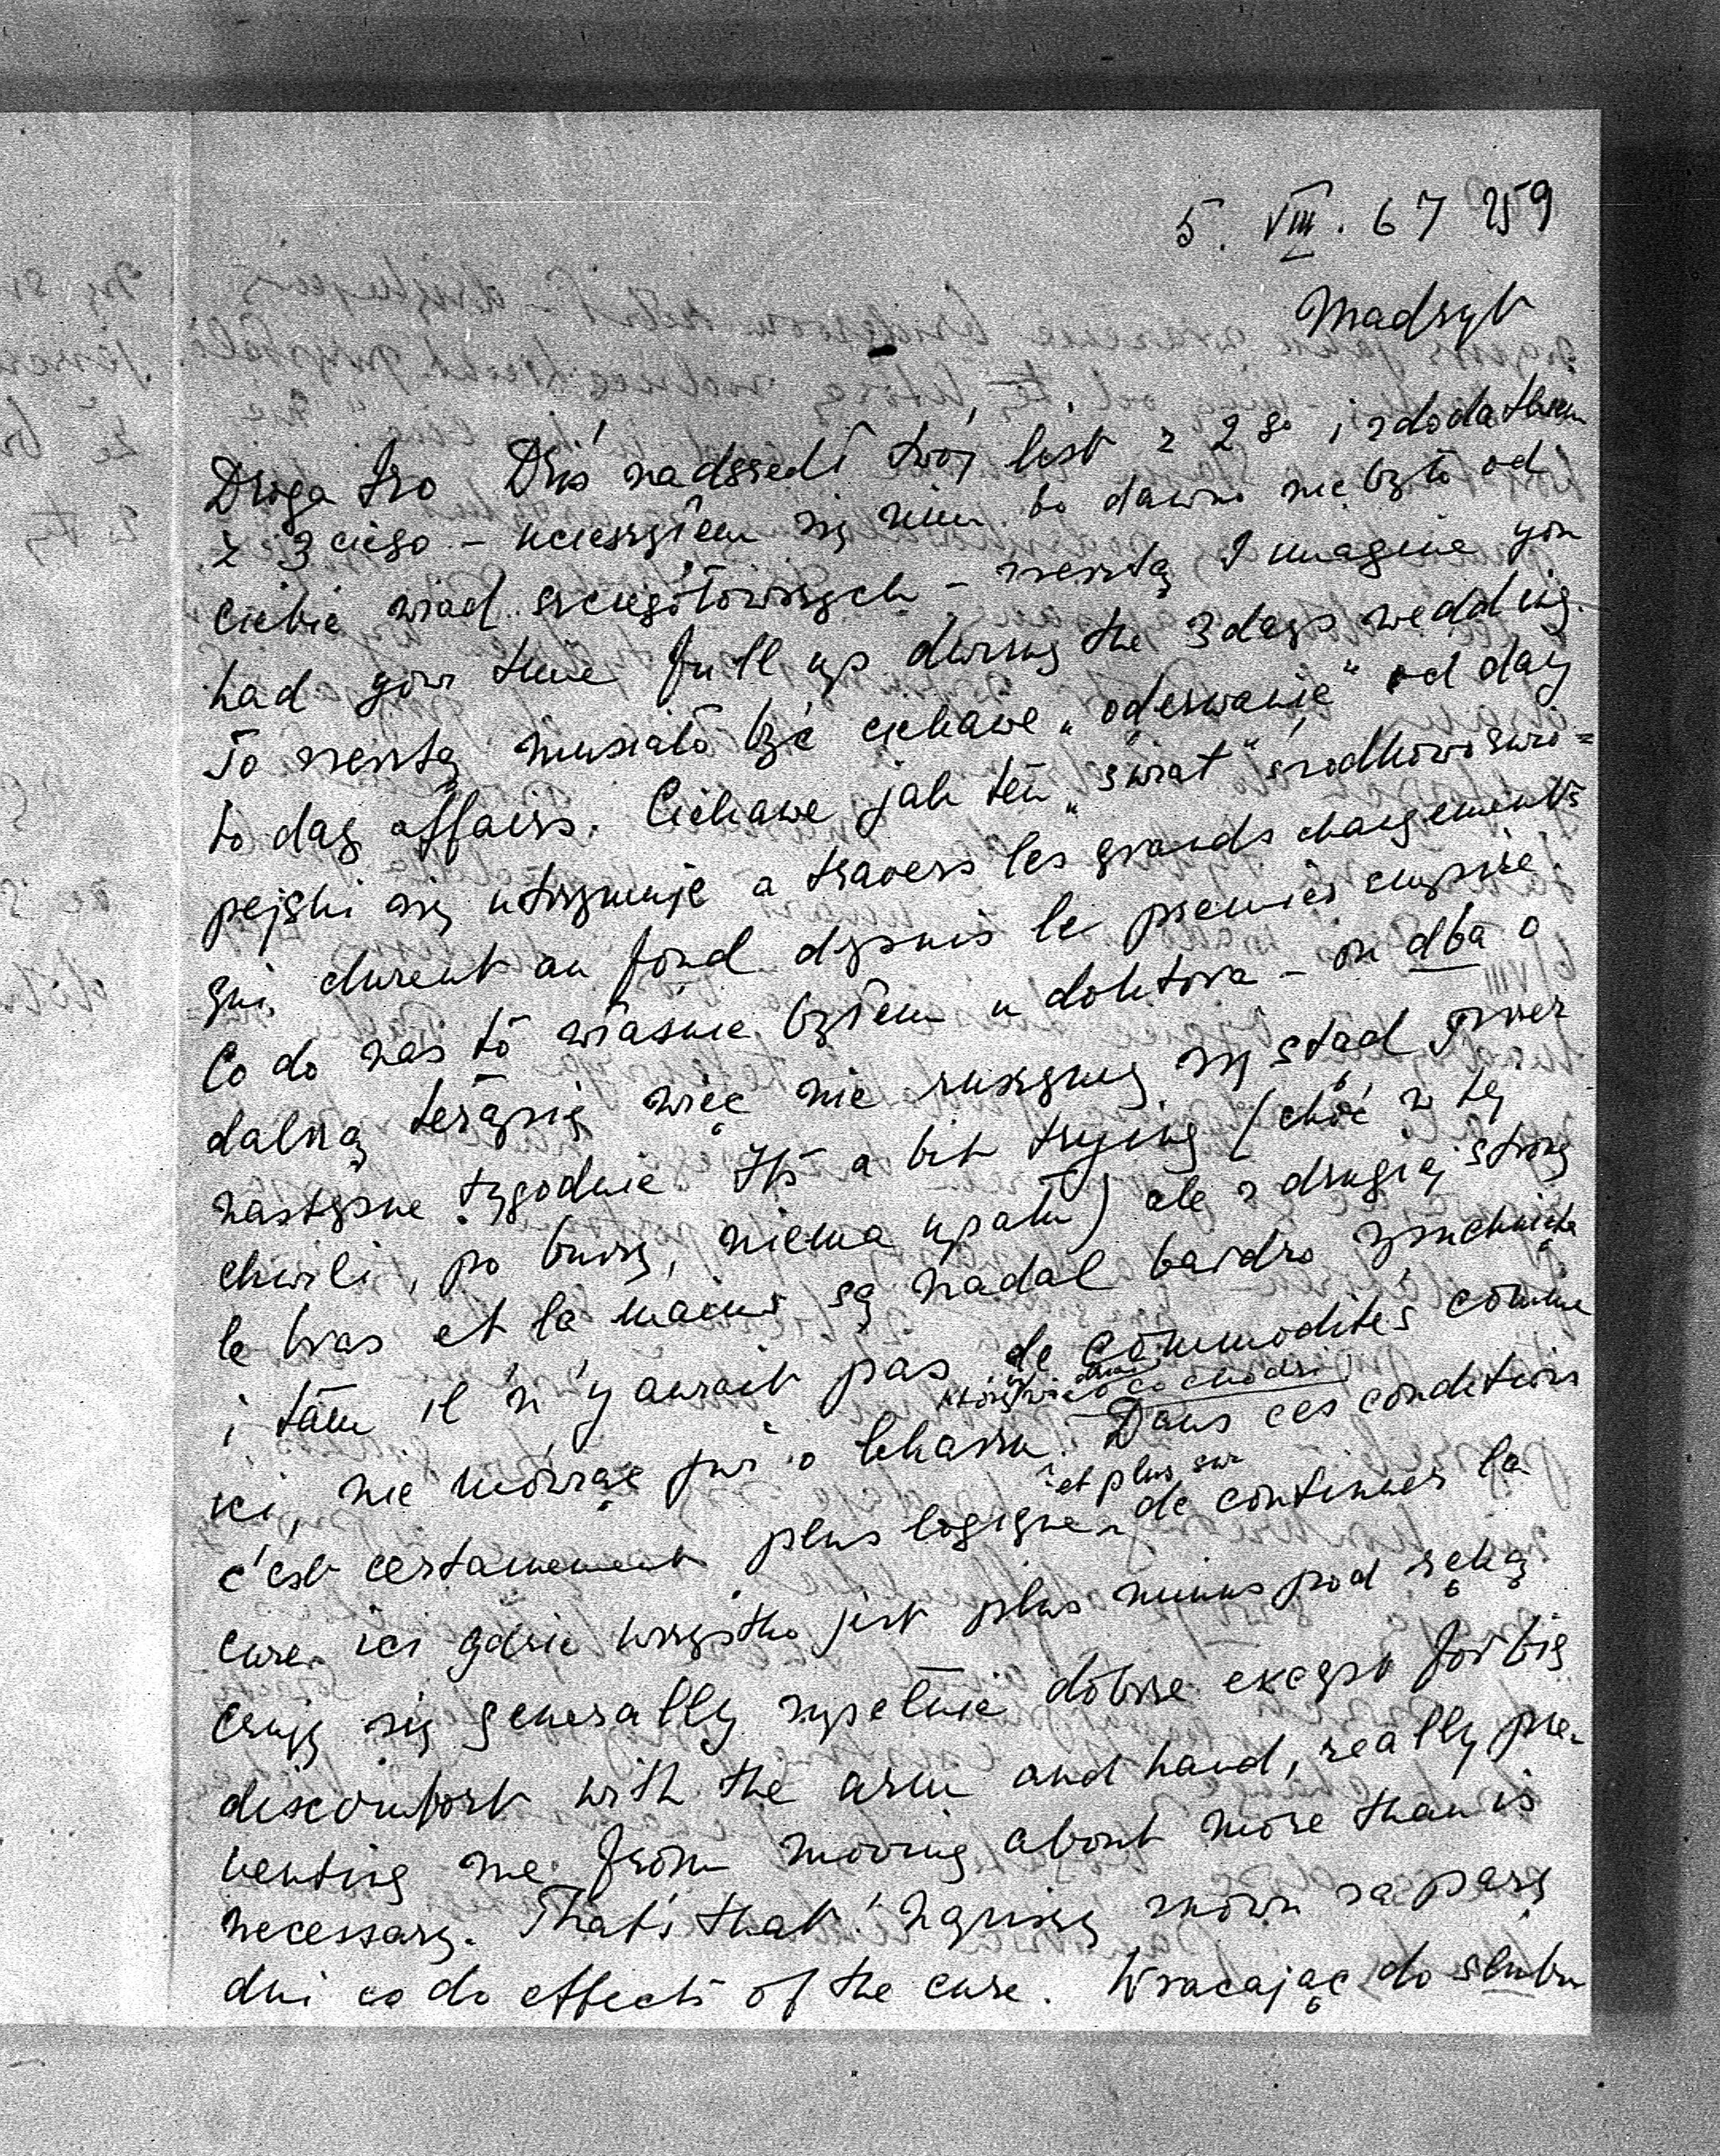 5. VIII. 67 259
Madryt
Droga Iro Dziś nadszedł twój list z 2go i z dodatkiem
z 3ciego – ucieszyłem się nim bo dawno nie było od
Ciebie wiad. szczegółowszych – zresztą I imagine you
had your time full up during the 3 days wedding.
To zresztą musiało być ciekawe „oderwanie" od day
to day affairs. Ciekawe jak ten „świat" środkowoeuro=
pejski się utrzymuje a travers les grands changements
qui durent au fond depuis le premier empire.
Co do nas to właśnie byłem u doktora – on dba o
dalszą terapię więc nie ruszymy się stąd przez
następne tygodnie. It's a bit trying (choć w tej
chwili, po burzy, niema upału) ale z drugiej strony
le bras et la main są nadal bardzo spuchnięte
i tam il n'y aurait pas de commodités comme
ici, nie mówiąc już o lekarzu, który wie o co chodzi! Dans ces conditions
c'est certainement plus logique et plus sur de continuer la
cure ici gdzie wszystko jest plus minus pod ręką
czuję się generally zupełnie dobrze except for big
discomfort with the arm and hand, really pre=
venting me from moving about more than is
necessary. That's that! Napiszę znowu za parę
dni co do effects of the cure. Wracając do ślubu